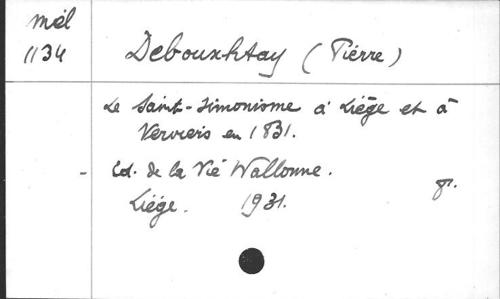 mél
1134
Debouxhtay (Pierre)
Le Saint-Simonisme à Liège et à
Verviers en 1831.
- Ed. de la Vie Wallonne.
Liége. 1931.